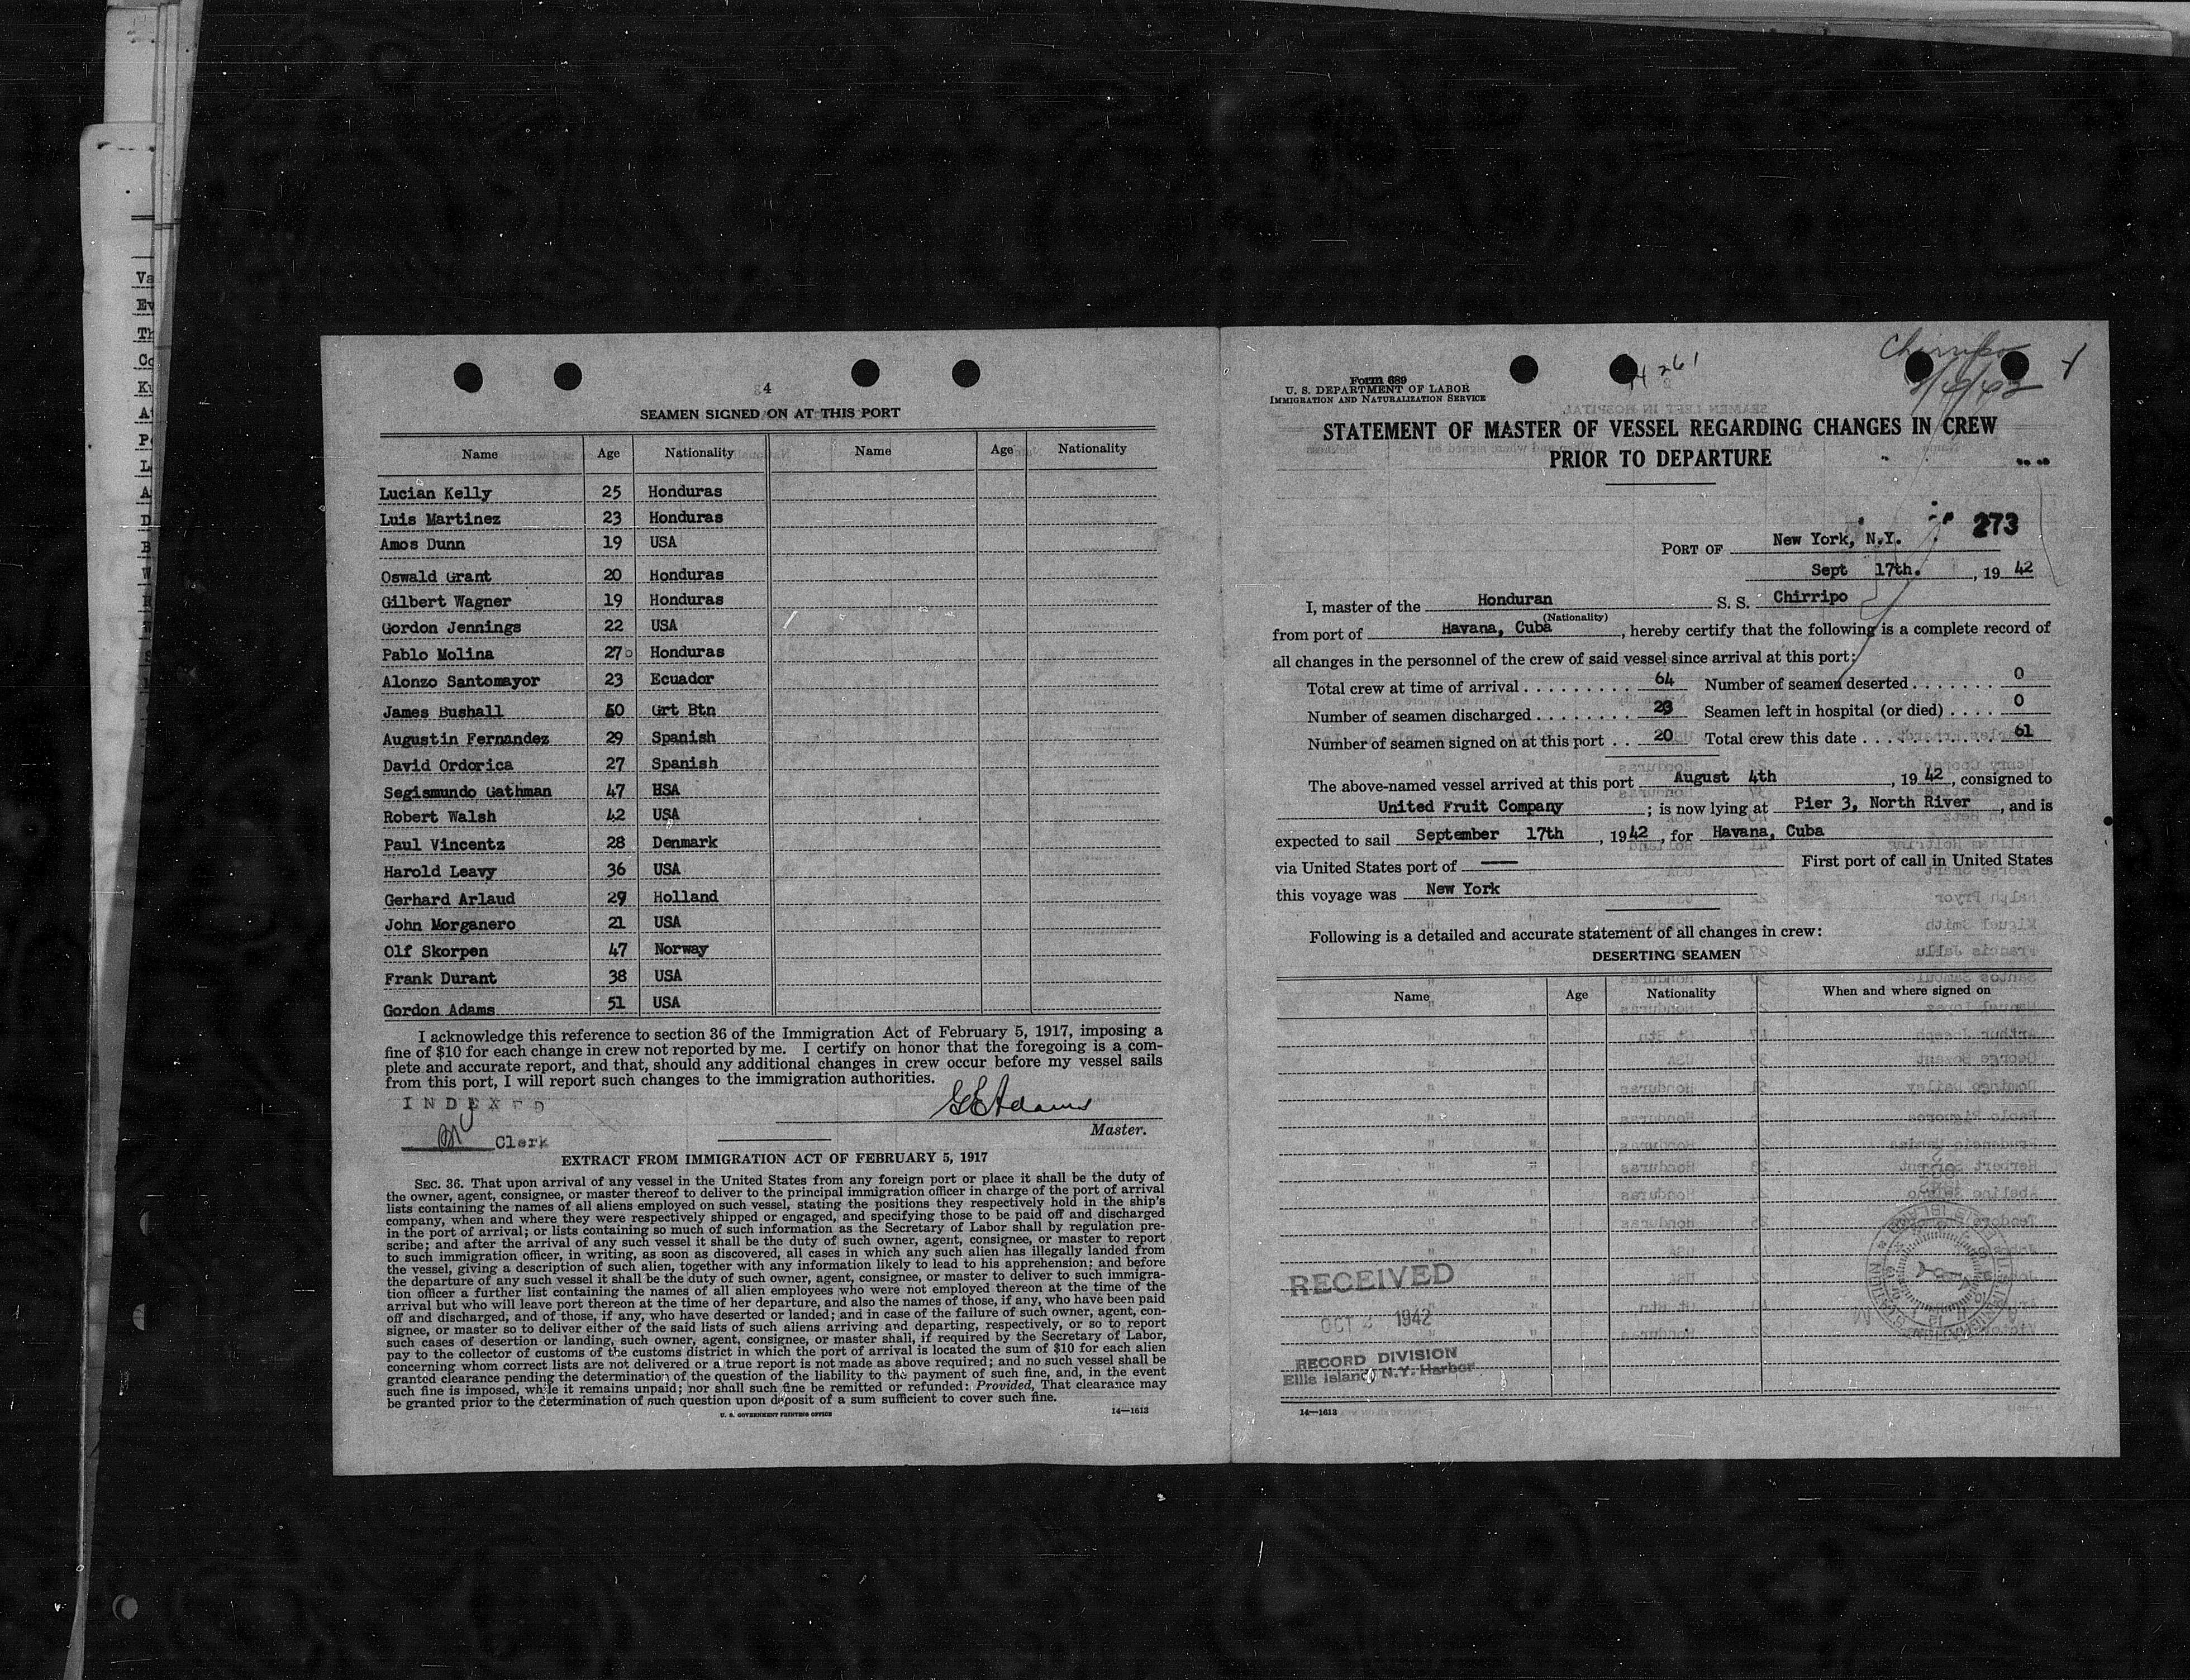 4
SEAMEN SIGNED ON AT THIS PORT
Name Age Nationality Name Age Nationality
Lucian Kelly 25 Honduras
Luis Martinez 23 Honduras
Amos Dunn 19 USA
Oswald Grant 20 Honduras
Gilbert Wagner 19 Honduras
Gordon Jennings 22 USA
Pablo Molina 27 Honduras
Alonzo Santomayor 23 Ecuador
James Bushall 50 Grt Btn
Augustin Fernandez 29 Spanish
David Ordorica 27 Spanish
Segismundo Gathman 47 HSA
Robert Walsh 42 USA
Paul Vincentz 28 Denmark
Harold Leavy 36 USA
Gerhard Arlaud 29 Holland
John Morganero 21 USA
Olf Skorpen 47 Norway
Frank Durant 38 USA
Gordon Adams 51 USA
I acknowledge this reference to section 36 of the Immigration Act of February 5, 1917, imposing a
fine of $10 for each change in crew not reported by me. I certify on honor that the foregoing is a com-
plete and accurate report, and that, should any additional changes in crew occur before my vessel sails
from this port, I will report such changes to the immigration authorities.
INDEXED
G E Adams
Clerk
Master.
EXTRACT FROM IMMIGRATION ACT OF FEBRUARY 5, 1917
SEC. 36. That upon arrival of any vessel in the United States from any foreign port or place it shall be the duty of
the owner, agent, consignee, or master thereof to deliver to the principal immigration officer in charge of the port of arrival
lists containing the names of all aliens employed on such vessel, stating the positions they respectively hold in the ship's
company, when and where they were respectively shipped or engaged, and specifying those to be paid off and discharged
in the port of arrival; or lists containing so much of such information as the Secretary of Labor shall by regulation pre-
scribe; and after the arrival of any such vessel it shall be the duty of such owner, agent, consignee, or master to report
to such immigration officer, in writing, as soon as discovered, all cases in which any such alien has illegally landed from
the vessel, giving a description of such alien, together with any information likely to lead to his apprehension; and before
the departure of any such vessel it shall be the duty of such owner, agent, consignee, or master to deliver to such immigra-
tion officer a further list containing the names of all alien employees who were not employed thereon at the time of the
arrival but who will leave port thereon at the time of her departure, and also the names of those, if any, who have been paid
off and discharged, and of those, if any, who have deserted or landed; and in case of the failure of such owner, agent, con-
signee, or master so to deliver either of the said lists of such aliens arriving and departing, respectively, or so to report
such cases of desertion or landing, such owner, agent, consignee, or master shall, if required by the Secretary of Labor,
pay to the collector of customs of the customs district in which the port of arrival is located the sum of $10 for each alien
concerning whom correct lists are not delivered or a true report is not made as above required; and no such vessel shall be
granted clearance pending the determination of the question of the liability to the payment of such fine, and, in the event
such fine is imposed, while it remains unpaid; nor shall such fine be remitted or refunded: Provided, That clearance may
be granted prior to the determination of such question upon deposit of a sum sufficient to cover such fine.
U. S. GOVERNMENT PRINTING OFFICE 14—1613
Chirripo
Form 689
U. S. DEPARTMENT OF LABOR
IMMIGRATION AND NATURALIZATION SERVICE
STATEMENT OF MASTER OF VESSEL REGARDING CHANGES IN CREW
PRIOR TO DEPARTURE
273
PORT OF New York, N.Y.
Sept 17th. , 19 42
I, master of the Honduran S. S. Chirripo
(Nationality)
from port of Havana, Cuba , hereby certify that the following is a complete record of
all changes in the personnel of the crew of said vessel since arrival at this port:
Total crew at time of arrival . . . . . . . . . 64 Number of seamen deserted . . . . . . . 0
Number of seamen discharged . . . . . . . . 23 Seamen left in hospital (or died) . . . . 0
Number of seamen signed on at this port . . 20 Total crew this date . . . . . . . . . . . 61
The above-named vessel arrived at this port August 4th , 19 42 , consigned to
United Fruit Company ; is now lying at Pier 3, North River , and is
expected to sail September 17th , 1942 , for Havana, Cuba
via United States port of — First port of call in United States
this voyage was New York
Following is a detailed and accurate statement of all changes in crew:
DESERTING SEAMEN
Name Age Nationality When and where signed on
RECEIVED
OCT 1942
RECORD DIVISION
Ellis Island, N.Y. Harbor
14—1613